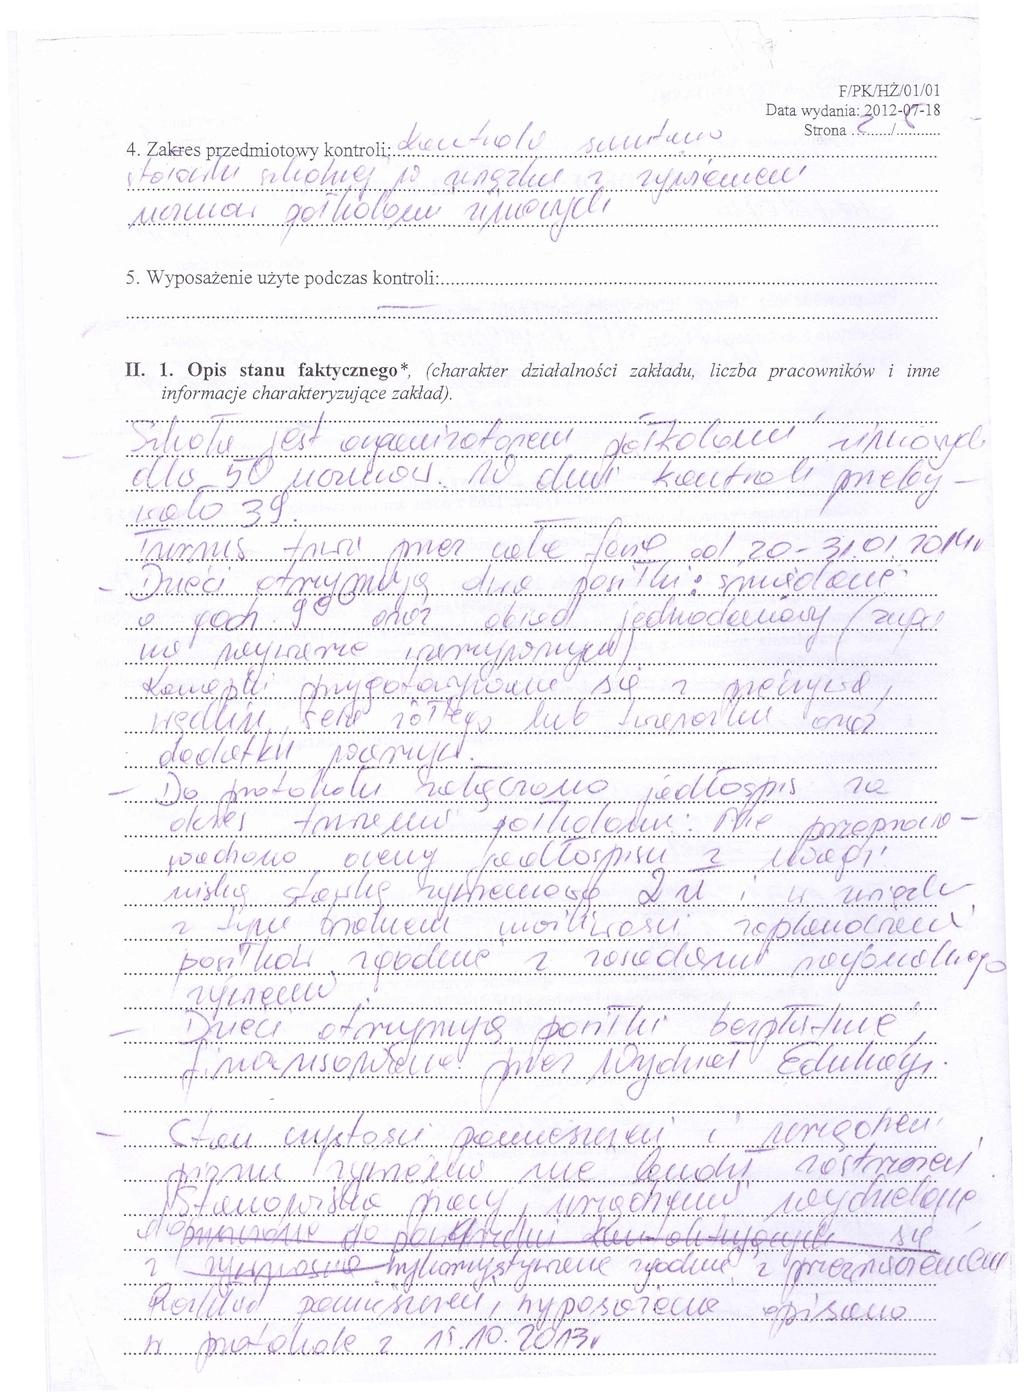 F/PK/HŻ/01/01
Data wydania: 2012-07-18
Strona 2/
4. Zakres przedmiotowy kontroli: Kontrola sanitarna
stołówki szkolnej w związku z żywieniem
uczniów półkolonii zimowych
5. Wyposażenie użyte podczas kontroli:
II. 1. Opis stanu faktycznego*, (charakter działalności zakładu, liczba pracowników i inne
informacje charakteryzujące zakład).
- Szkoła jest organizatorem półkolonii zimowych
dla 50 uczniów. W dniu kontroli przeby-
wało 39.
Turnus trwa przez całe ferie od 20-31.01.2014r
- Dzieci otrzymują dwa posiłki: śniadanie
o godz. 9 00 oraz obiad jednodaniowy (zupa
na wywarze warzywnym)
Kanapki przygotowywane są z pieczywa,
wędlin, sera żółtego lub twarożku oraz
dodatku warzyw.
- Do protokołu załączono jadłospis za
okres trwania półkolonii. Nie przepro-
wadzono oceny jadłospisu z uwagi
niską stawkę żywieniową 2 zł i w związku
z tym brakiem możliwości zaplanowania
posiłków zgodnie z zasadami racjonalnego
żywienia.
- Dzieci otrzymują posiłki bezpłatnie,
finansowane przez Wydział Edukacji.
- Stan czystości pomieszczeń i urządzeń
pionu żywienia nie budzi zastrzeżeń.
Stanowiska pracy, urządzenia wydzielone
do powierzchni kontaktujących się
z żywnością wykorzystywane zgodnie z przeznaczeniem
Rozkład pomieszczeń, wyposażenie opisano
w protokole z 15.10.2013r